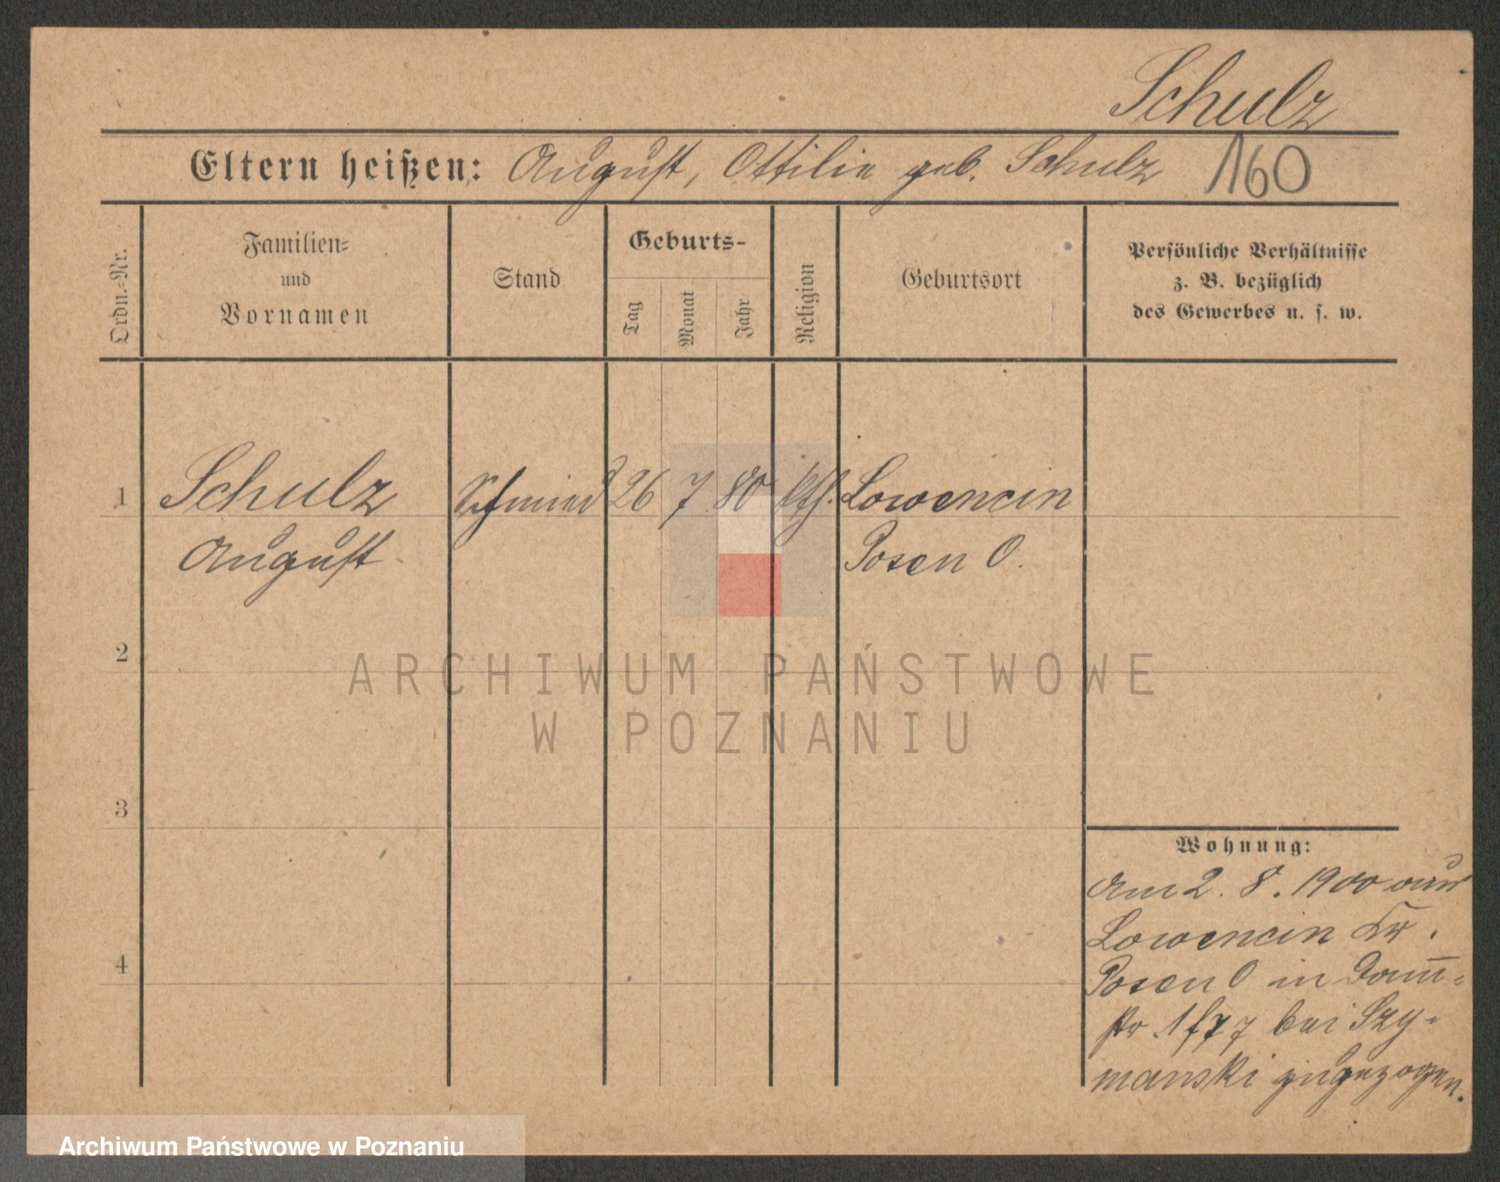 Schulz
Eltern heißen: August, Ottilie geb. Schulz 160
Ordn.-Nr.
Familien-
und
Vornamen
Stand
Geburts-
Tag
Monat
Jahr
Religion
Geburtsort
Persönliche Verhältnisse
z. B. bezüglich
des Gewerbes u. s. w.
1 Schulz Schmied 26 7 80 kth. Lowencin
August Posen O.
2
3
4
Wohnung:
Am 2. 8. 1900 aus
Lowencin Kr.
Posen O in
bei Szy-
manski zugezogen.
ARCHIWUM PAŃSTWOWE
W POZNANIU
Archiwum Państwowe w Poznaniu